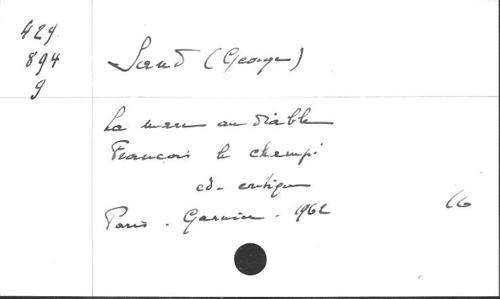 429
894
9
Sand (George)
La mare au diable
Francois le champi
ed. critique
Paris. Garnier. 1962
16